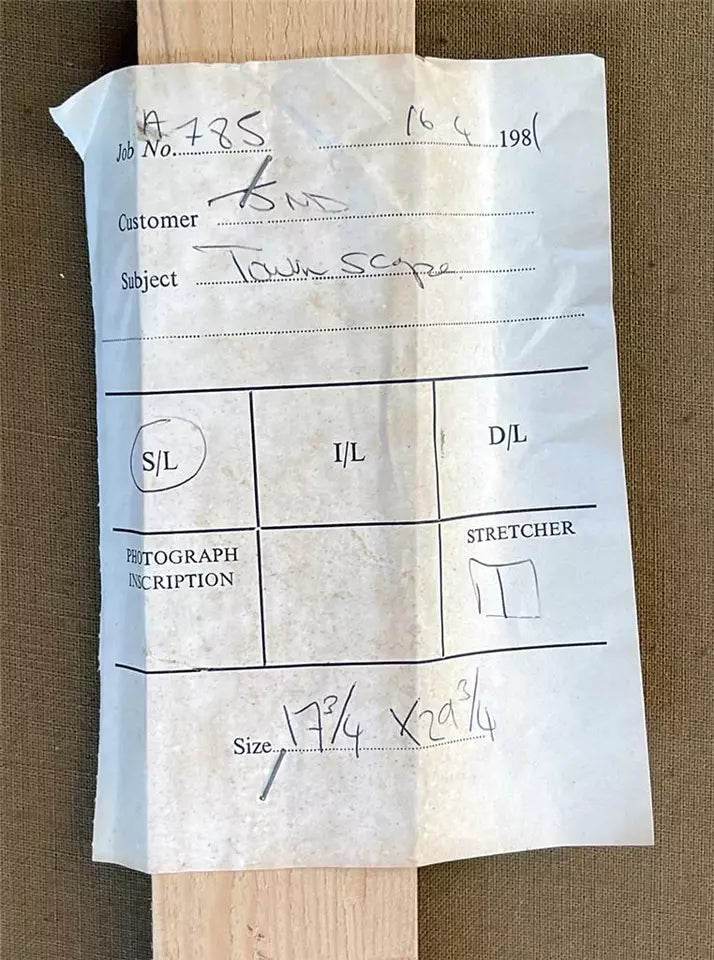 Job No. A785 16 4 1981
Customer
Subject Town Scape
S/L I/L D/L
PHOTOGRAPH INSCRIPTION STRETCHER
Size 17 3/4 X 29 3/4